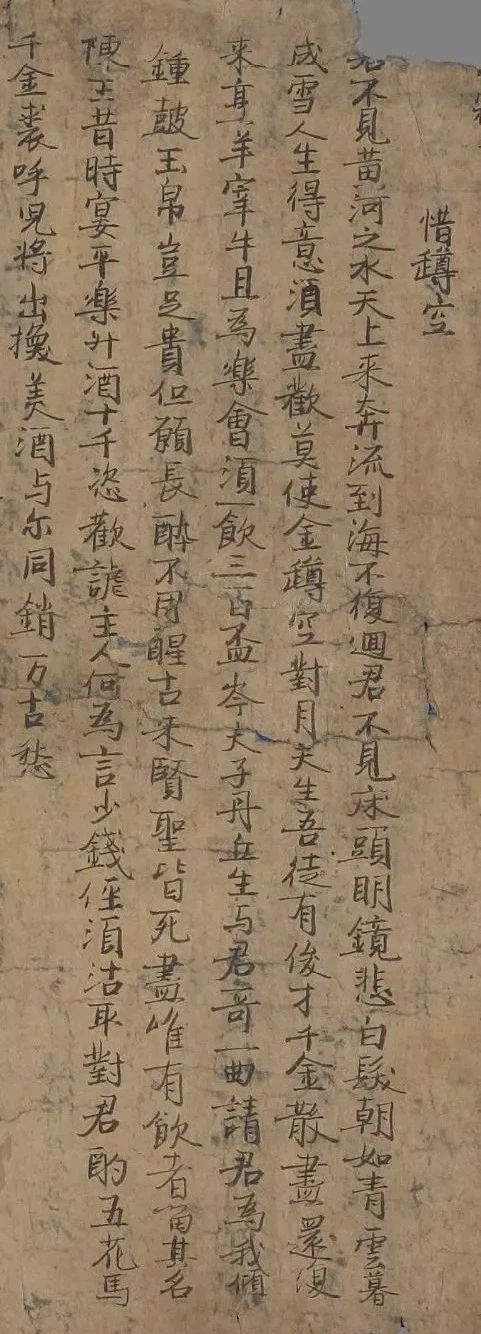 惜罇空
君不見黄河之水天上来奔流到海不復迴君不見床頭明鏡悲白髮朝如青雲暮
成雪人生得意酒盡歡莫使金罇空對月天生吾徒有俊才千金散盡還復
来烹羊宰牛且為樂會湏一飲三百盃岑夫子丹丘生与君哥一曲請君為我傾
鍾皷玉帛豈足貴但願長酔不用醒古来賢聖皆死盡唯有飲者留其名
陳王昔時宴平樂斗酒十千恣歡謔主人何為言少錢俓湏沽取對君酌五花馬
千金裘呼児將出換美酒与尔同銷万古愁